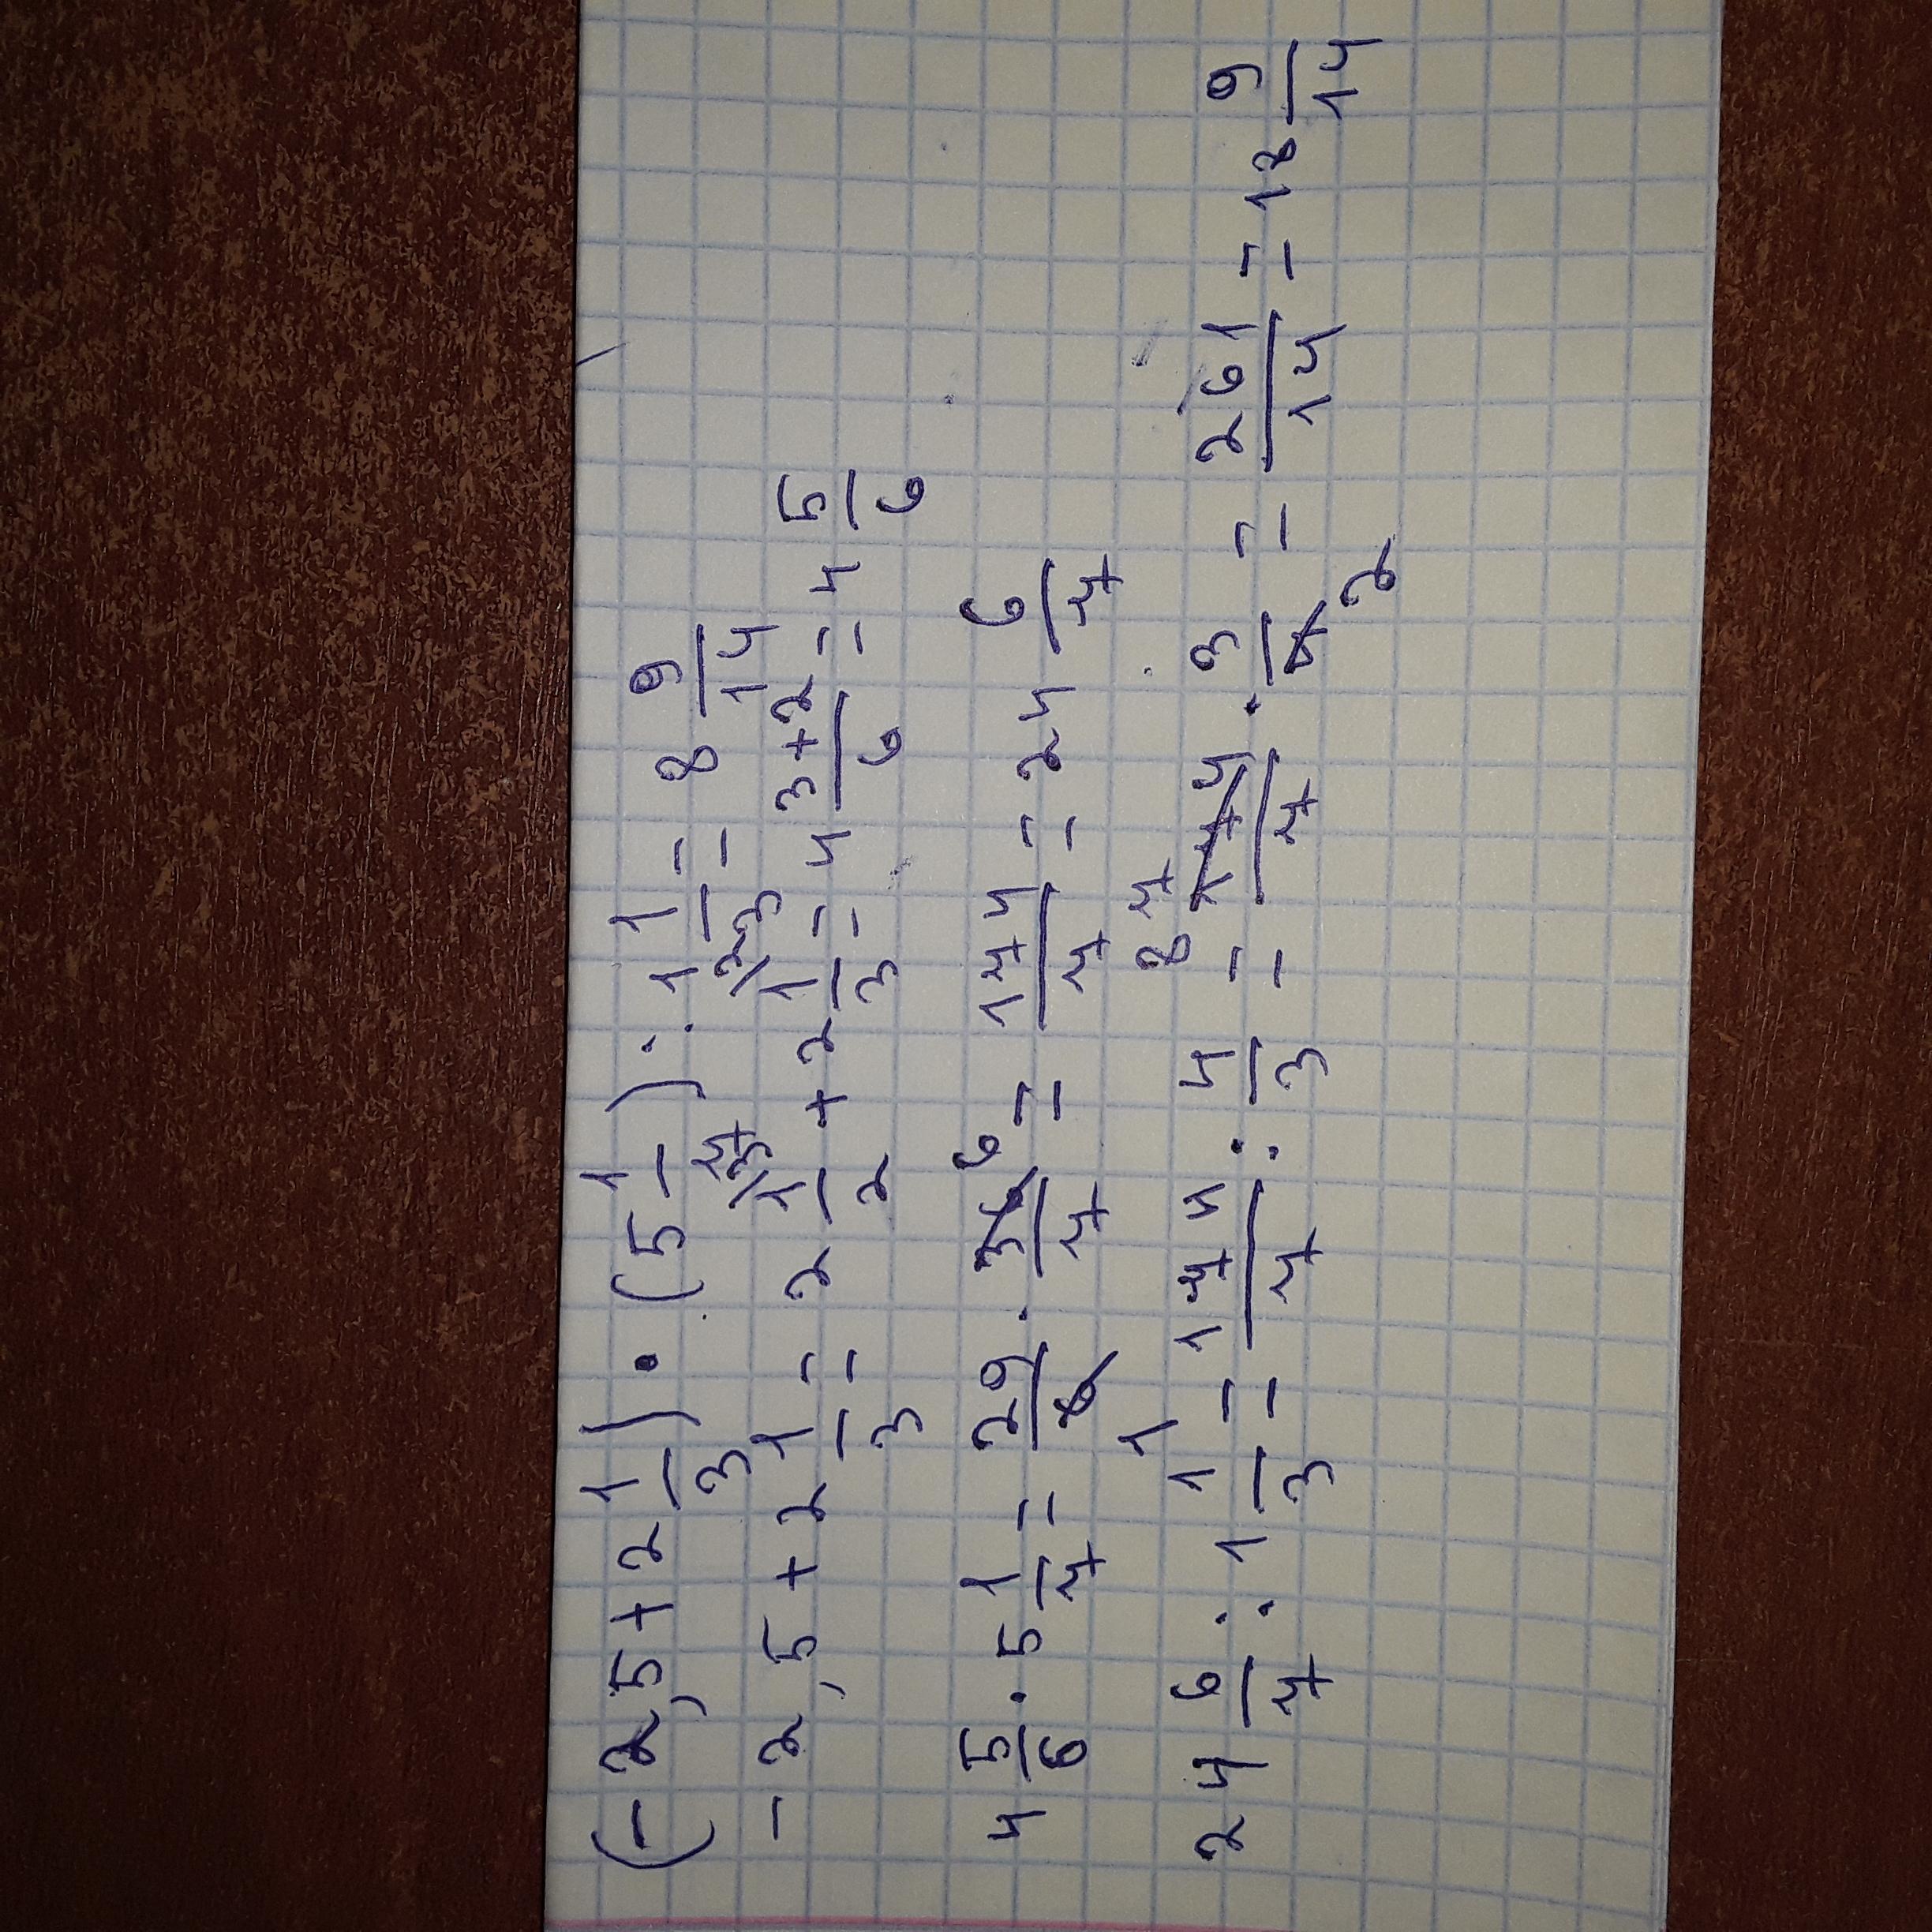 (-2,5+2 1/3) · (5 1/7) · 1 1/3 = 8 9/14
-2,5+2 1/3 = 2 1/2 + 2 1/3 = 4 3+2/6 = 4 5/6
4 5/6 · 5 1/7 = 29/6 · 36/7 6 = 174/7 = 24 6/7
24 6/7 : 1 1/3 = 174/7 : 4/3 = 87 174/7 · 3/4 2 = 261/14 = 18 9/14